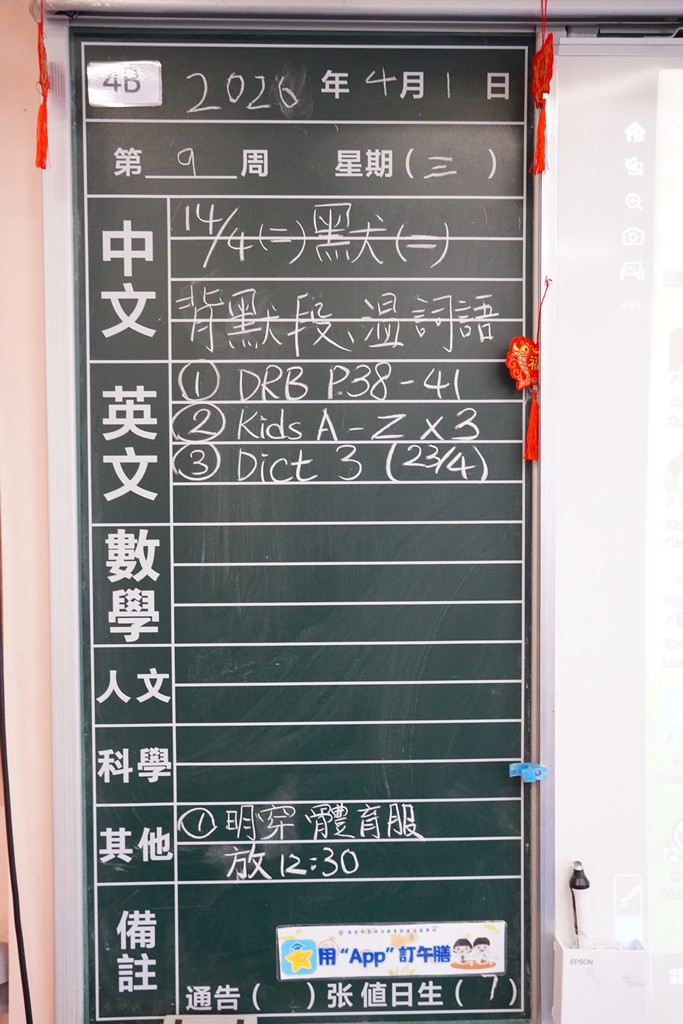 4B 2026 年 4 月 1 日
第 9 周 星期(三)
中文
14/4(二)默犬(二)
背默段、温詞語
英文
① DRB P.38-41
② Kids A-Z x3
③ Dict 3 (23/4)
數學
人文
科學
其他
① 明穿體育服
放12:30
備註
用“App”訂午膳
通告( )张 值日生(7)
EPSON